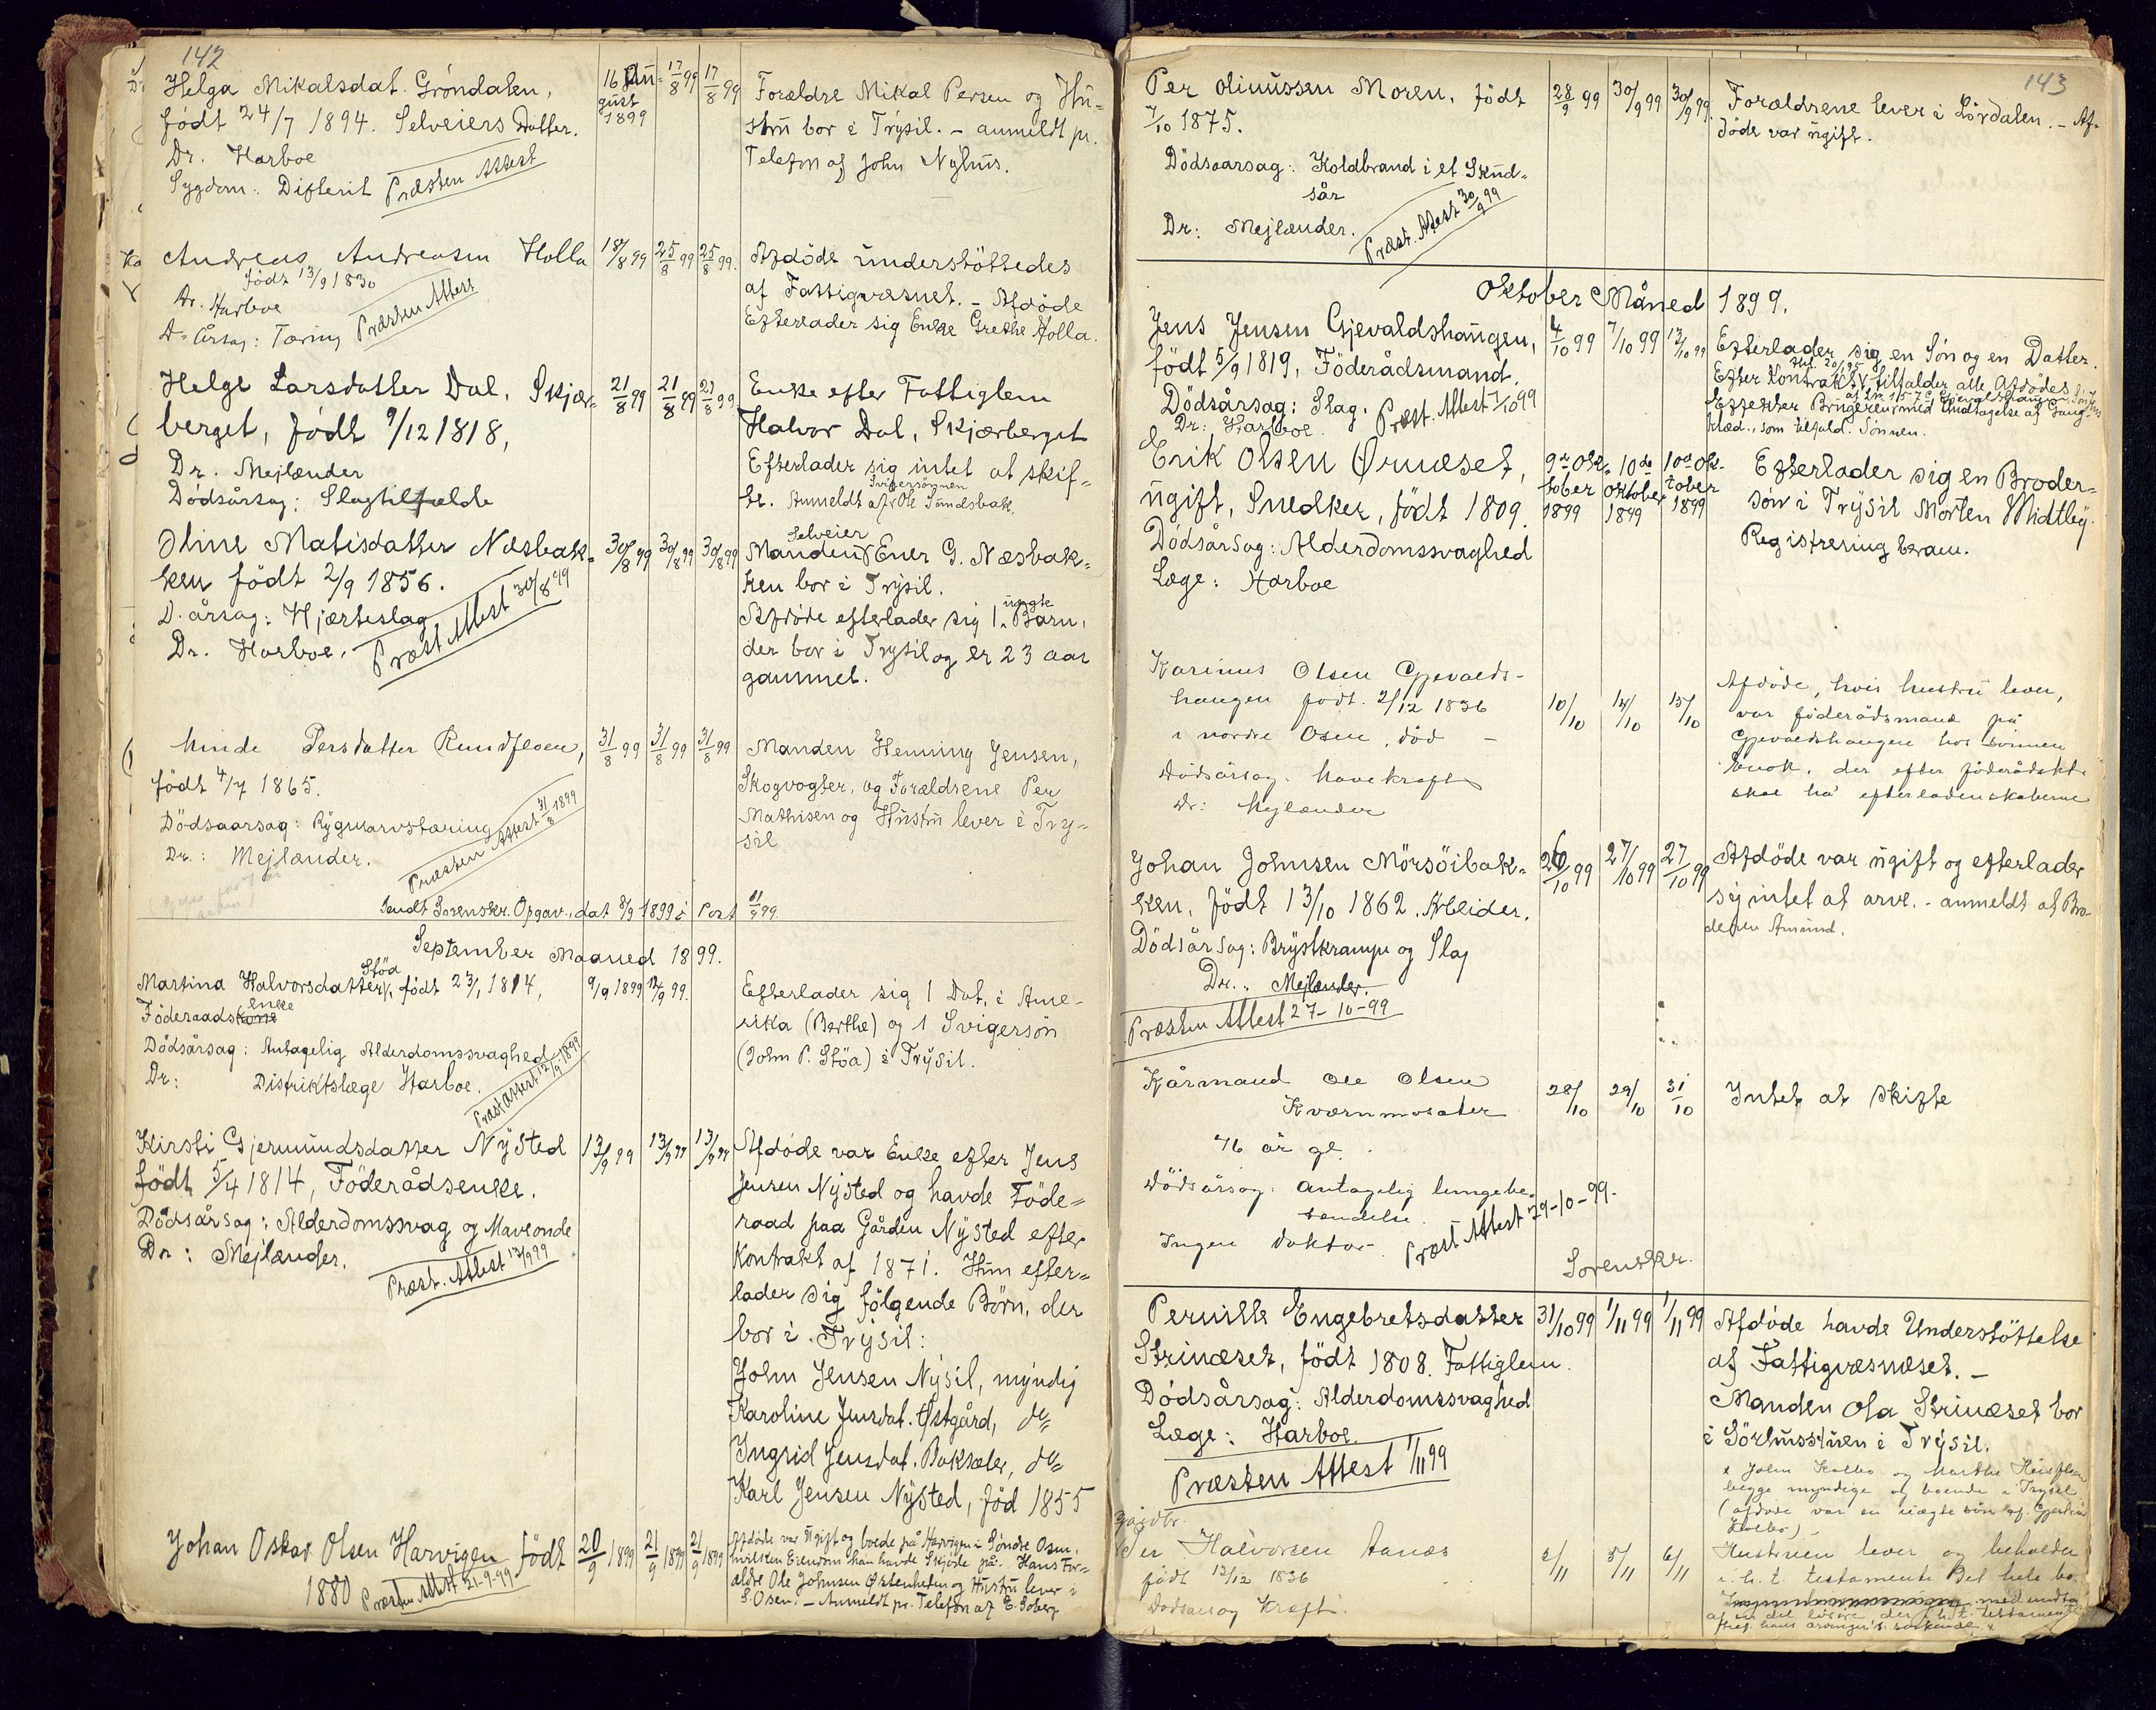 142
Helga Mikalsdat. Gröndalen,
født 24/7 1894. Selveiers Datter.
Dr. Harboe
Sygdom: Difterit Præsten Attest
16 August 1899
17/8 99
17/8 99
Forældre Mikal Persen og Hu-
stru bor i Trysil. - anmeldt pr.
Telefon af John Nyhus.
Andreas Andreasen Holla
født 13/9 1830
Dr. Harboe
D. Årsag: Tæring Præsten Attest
18/8 99
25/8 99
25/8 99.
Afdöde understöttedes
af Fattigvæsnet. - Afdöde
Efterlader sig Enke Grethe Holla.
Helge Larsdatter Dal, Skjær-
berget, født 9/12 1818,
Dr. Mejlænder
Dödsårsag: Slagtilfælde
21/8 99
21/8 99
23/8 99
Enke efter Fattiglem
Halvor Dal, Skjærberget
Efterlader sig intet at skif-
Svigersönnen
te. Anmeldt af Ole Sundsbak.
Oline Matisdatter Næsbak-
ken født 2/9 1856.
D. årsag: Hjærteslag
Dr. Harboe. Præst Attest 30/8 99
30/8 99
30/8 99
30/8 99
Selveier
Manden Ener G. Næsbak-
ken bor i Trysil.
uægte
Afdöde efterlader sig 1 Barn,
der bor i Trysil og er 23 aar
gammel.
Minde Persdatter Rundfloen,
født 4/7 1865.
Dödsaarsag: Rygmarvstæring
Dr.: Mejlænder.
Præsten Attest 31/8 1899
31/8 99
31/8 99
31/8 99
Manden Henning Jensen,
Skogvogter, og Forældrene Per
Mathisen og Hustru lever i Try-
sil
Sendt Sorenskr. Opgav., dat 8/9 1899 i Post 11/9 99.
September Maaned 1899.
Stöa
Martina Halvorsdatter, født 23/1 1814,
enke
Föderaadskone
Dödsårsag: Antagelig Alderdomssvaghed
Dr: Distriktslæge Harboe.
Præst Attest 12/9 1899
9/9 1899
12/9 99.
Efterlader sig 1 Dat. i Ame-
rika (Berthe) og 1 Svigersön
(John P. Stöa) i Trysil.
Kirsti Gjermundsdatter Nysted
født 5/4 1814, Föderådsenke.
Dödsårsag: Alderdomssvag og Maveonde
Dr: Mejlænder.
Præst. Attest 13/9 99
13/9 99
13/9 99
13/9 99
Afdöde var Enke efter Jens
Jensen Nysted og havde Föde-
raad paa Gården Nysted efter
Kontrakt af 1871. Hun efter-
lader sig fölgende Börn, der
bor i Trysil:
John Jensen Nysil, myndig
Karoline Jensdat. Østgård, do
Ingrid Jensdat. Baksæter, do
Karl Jensen Nysted, föd 1855
Johan Oskar Olsen Harvigen født
1880 Præsten Attest 21-9-99
20/9 1899
21/9 1899
21/9 1899
Afdöde var ugift og boede på Harvigen i Söndre Osen,
hvilken Eiendom han havde Skjöde på. Hans For-
ældre Ole Johnsen Østenheden og Hustru lever i
S. Osen. - Anmeldt pr. Telefon af E. Soberg
143
Per Olinussen Moren, født
7/10 1875.
Dödsaarsag: Koldbrand i et Skud-
sår
Dr: Mejlænder. Præst. Attest 30/9 99
28/9 99
30/9 99
30/9 99.
Forældrene lever i Lördalen. - Af-
döde var ugift.
Oktober Måned 1899.
Jens Jensen Gjevaldshaugen,
født 5/9 1819, Föderådsmand.
Dödsårsag: Slag. Præst. Attest 7/10 99
Dr: Harboe.
4/10 99
7/10 99
13/10 99
Efterlader sig en Sön og en Datter.
Efter Kontrakt tilfalder alle Afdödes
Effekter Brugeren med Undtagelse af Gang-
klæd., som tilfald. Sönnen.
Erik Olsen Ørnæset,
ugift, Snedker, født 1809.
Dödsårsag: Alderdomssvaghed
Læge: Harboe
9de Oktober 1899
10de Oktober 1899
10de Oktober 1899
Efterlader sig en Broder-
sön i Trysil Morten Midtby.
Registrering beram.
Karinus Olsen Gjevalds-
haugen født. 2/12 1836
i nordre Osen, död -
Dödsårsag: Mavekræft
Dr: Mejlænder
10/10
14/10
15/10
Afdöde, hvis hustru lever,
var föderådsmand på
Gjevaldshaugen hos sönnen
Enok, der efter föderådskt.
skal ha efterladenskaberne
Johan Johnsen Mörsöibak-
ken, født 13/10 1862. Arbeider.
Dödsårsag: Brystkrampe og Slag
Dr.: Mejlænder.
Præsten Attest 27-10-99
26/10 99
27/10 99
27/10 99
Afdöde var ugift og efterlader
sig intet at arve. - anmeldt af Bro-
deren Amund.
Kårmand Ole Olsen
Kværnmosæter
76 år gl.
Dödsårsag: antagelig lungebe-
tændelse.
Ingen doktor. Præst Attest 29-10-99.
28/10
29/10
31/10
Intet at skifte
Sorenskr.
Pernille Engebretsdatter
Strinæset, født 1808. Fattiglem.
Dödsårsag: Alderdomssvaghed
Læge: Harboe.
Præsten Attest 1/11 99
31/10 99
1/11 99
1/11 99
Afdöde havde Understöttelse
af Fattigvæsnæset. -
Manden Ola Strinæset bor
i Sörhusstuen i Trysil.
x John Holbo og Marthe
begge myndige og boende i Trysil
(afdöde var en uægte sön af
Holbo) -
Gårdbr.
Per Halvorsen Aanæs
født 12/12 1836
Dödsaarsag Kræft.
2/11
5/11
6/11
Hustruen lever og beholder
i h. t. testamente Det hele bo.
med undta
af en del lösöre, der i h. t. testamente